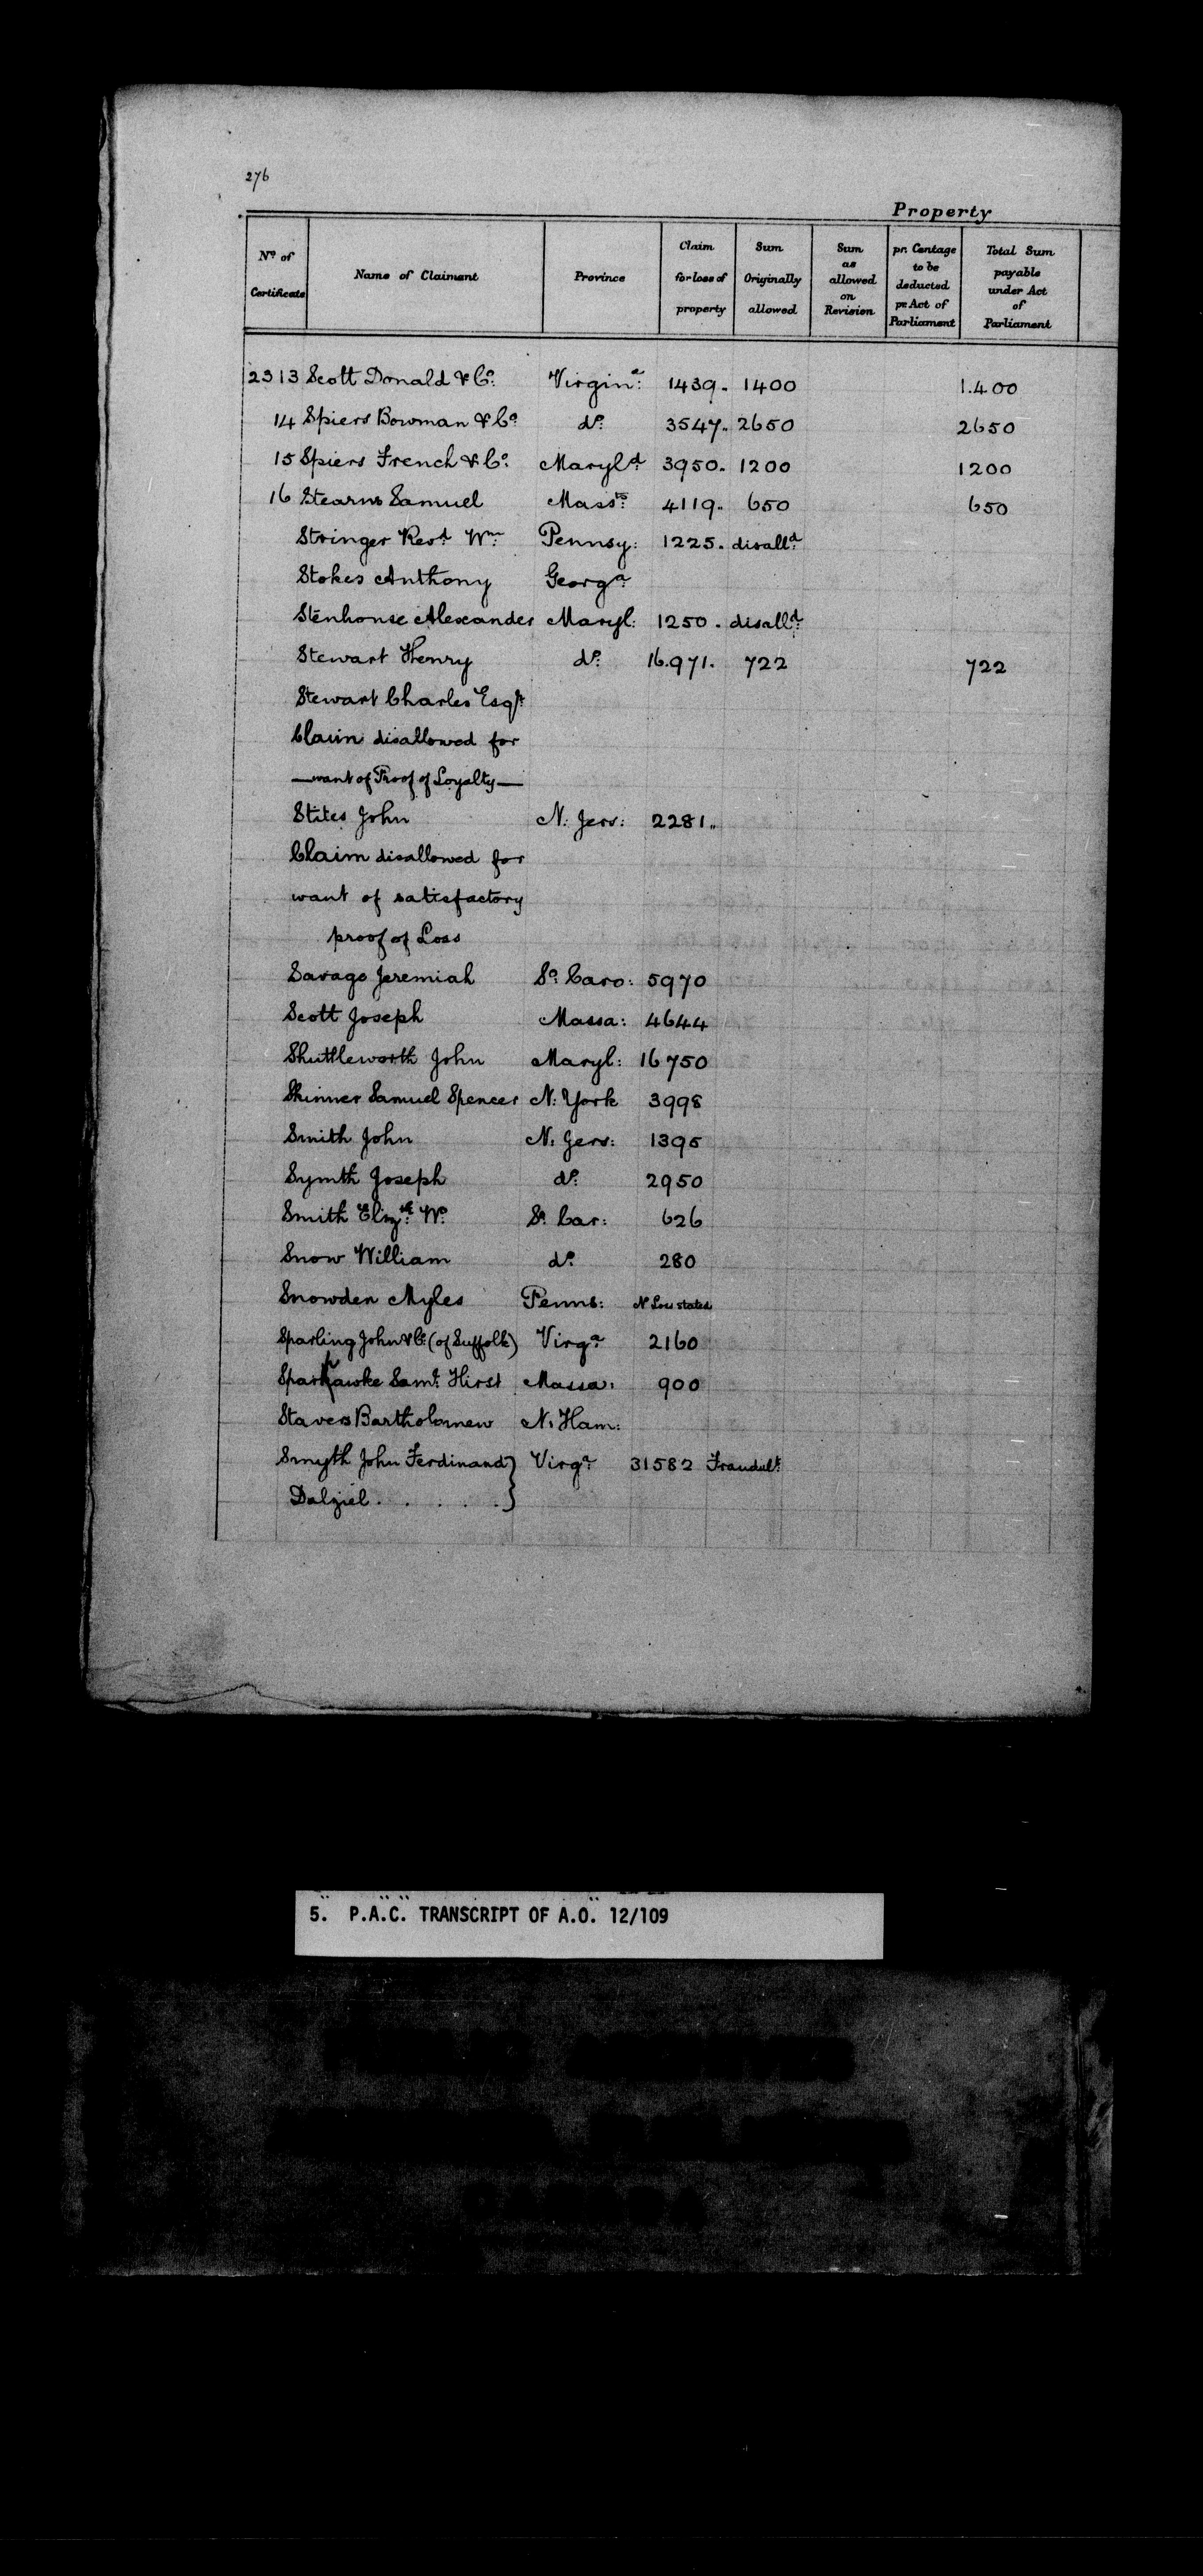 276
Property
No. of Certificate | Name of Claimant | Province | Claim for loss of property | Sum Originally allowed | Sum as allowed on Revision | pr. Centage to be deducted pr Act of Parliament | Total Sum payable under Act of Parliament
2313 Scott Donald & Co. Virgina: 1439. 1400 1.400
14 Spiers Bowman & Co do. 3547.. 2650 2650
15 Spiers French & Co. Maryld. 3950. 1200 1200
16 Stearns Samuel Massts: 4119.. 650 650
Stringer Revd. Wm. Pennsy: 1225. disalld.
Stokes Anthony Georga.
Stenhouse Alexander Maryl: 1250. disalld.
Stewart Henry do. 16.971. 722 722
Stewart Charles Esqr.
Claim disallowed for
—want of Proof of Loyalty—
Stites John N: Jers: 2281..
Claim disallowed for
want of satisfactory
proof of Loss
Savage Jeremiah So. Caro: 5970
Scott Joseph Massa: 4644
Shuttleworth John Maryl: 16750
Skinner Samuel Spencer N: York 3998
Smith John N: Jers: 1395
Symth Joseph do. 2950
Smith Elizth. Wo. So. Car: 626
Snow William do. 280
Snowden Myles Penns: N Loss stated
Sparling John & Co. (of Suffolk) Virga. 2160
Sparhawke Saml. Hirst Massa: 900
Stavers Bartholomew N: Ham:
Smyth John Ferdinand } Virga. 31582 Fraudult.
Dalziel . . . . . }
5. P.A.C. TRANSCRIPT OF A.O. 12/109